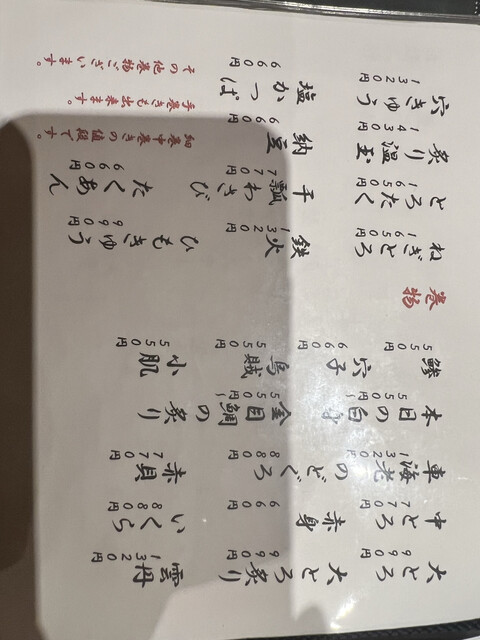 大とろ
990円
大とろ炙り
990円
雲丹
1320円
中とろ
770円
赤身
660円
いくら
880円
車海老
1320円
のどぐろ
880円
赤貝
770円
本日の白身
550円〜
金目鯛の炙り
550円〜
鯵
550円
穴子
660円
烏賊
550円
小肌
550円
巻物
ねぎとろ
1650円
鉄火
1320円
ひもきゅう
990円
とろたく
1650円
干瓢わさび
770円
たくあん
660円
炙り温玉
1430円
納豆
660円
穴きゅう
1320円
塩かっぱ
660円
細巻中巻きの値段です。
手巻きも出来ます。
その他巻物ございます。